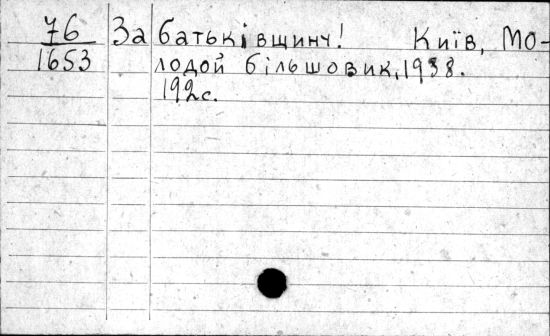 76 За батьківщину! Київ, Мо-
1653 лодой більшовик, 1938.
192 с.